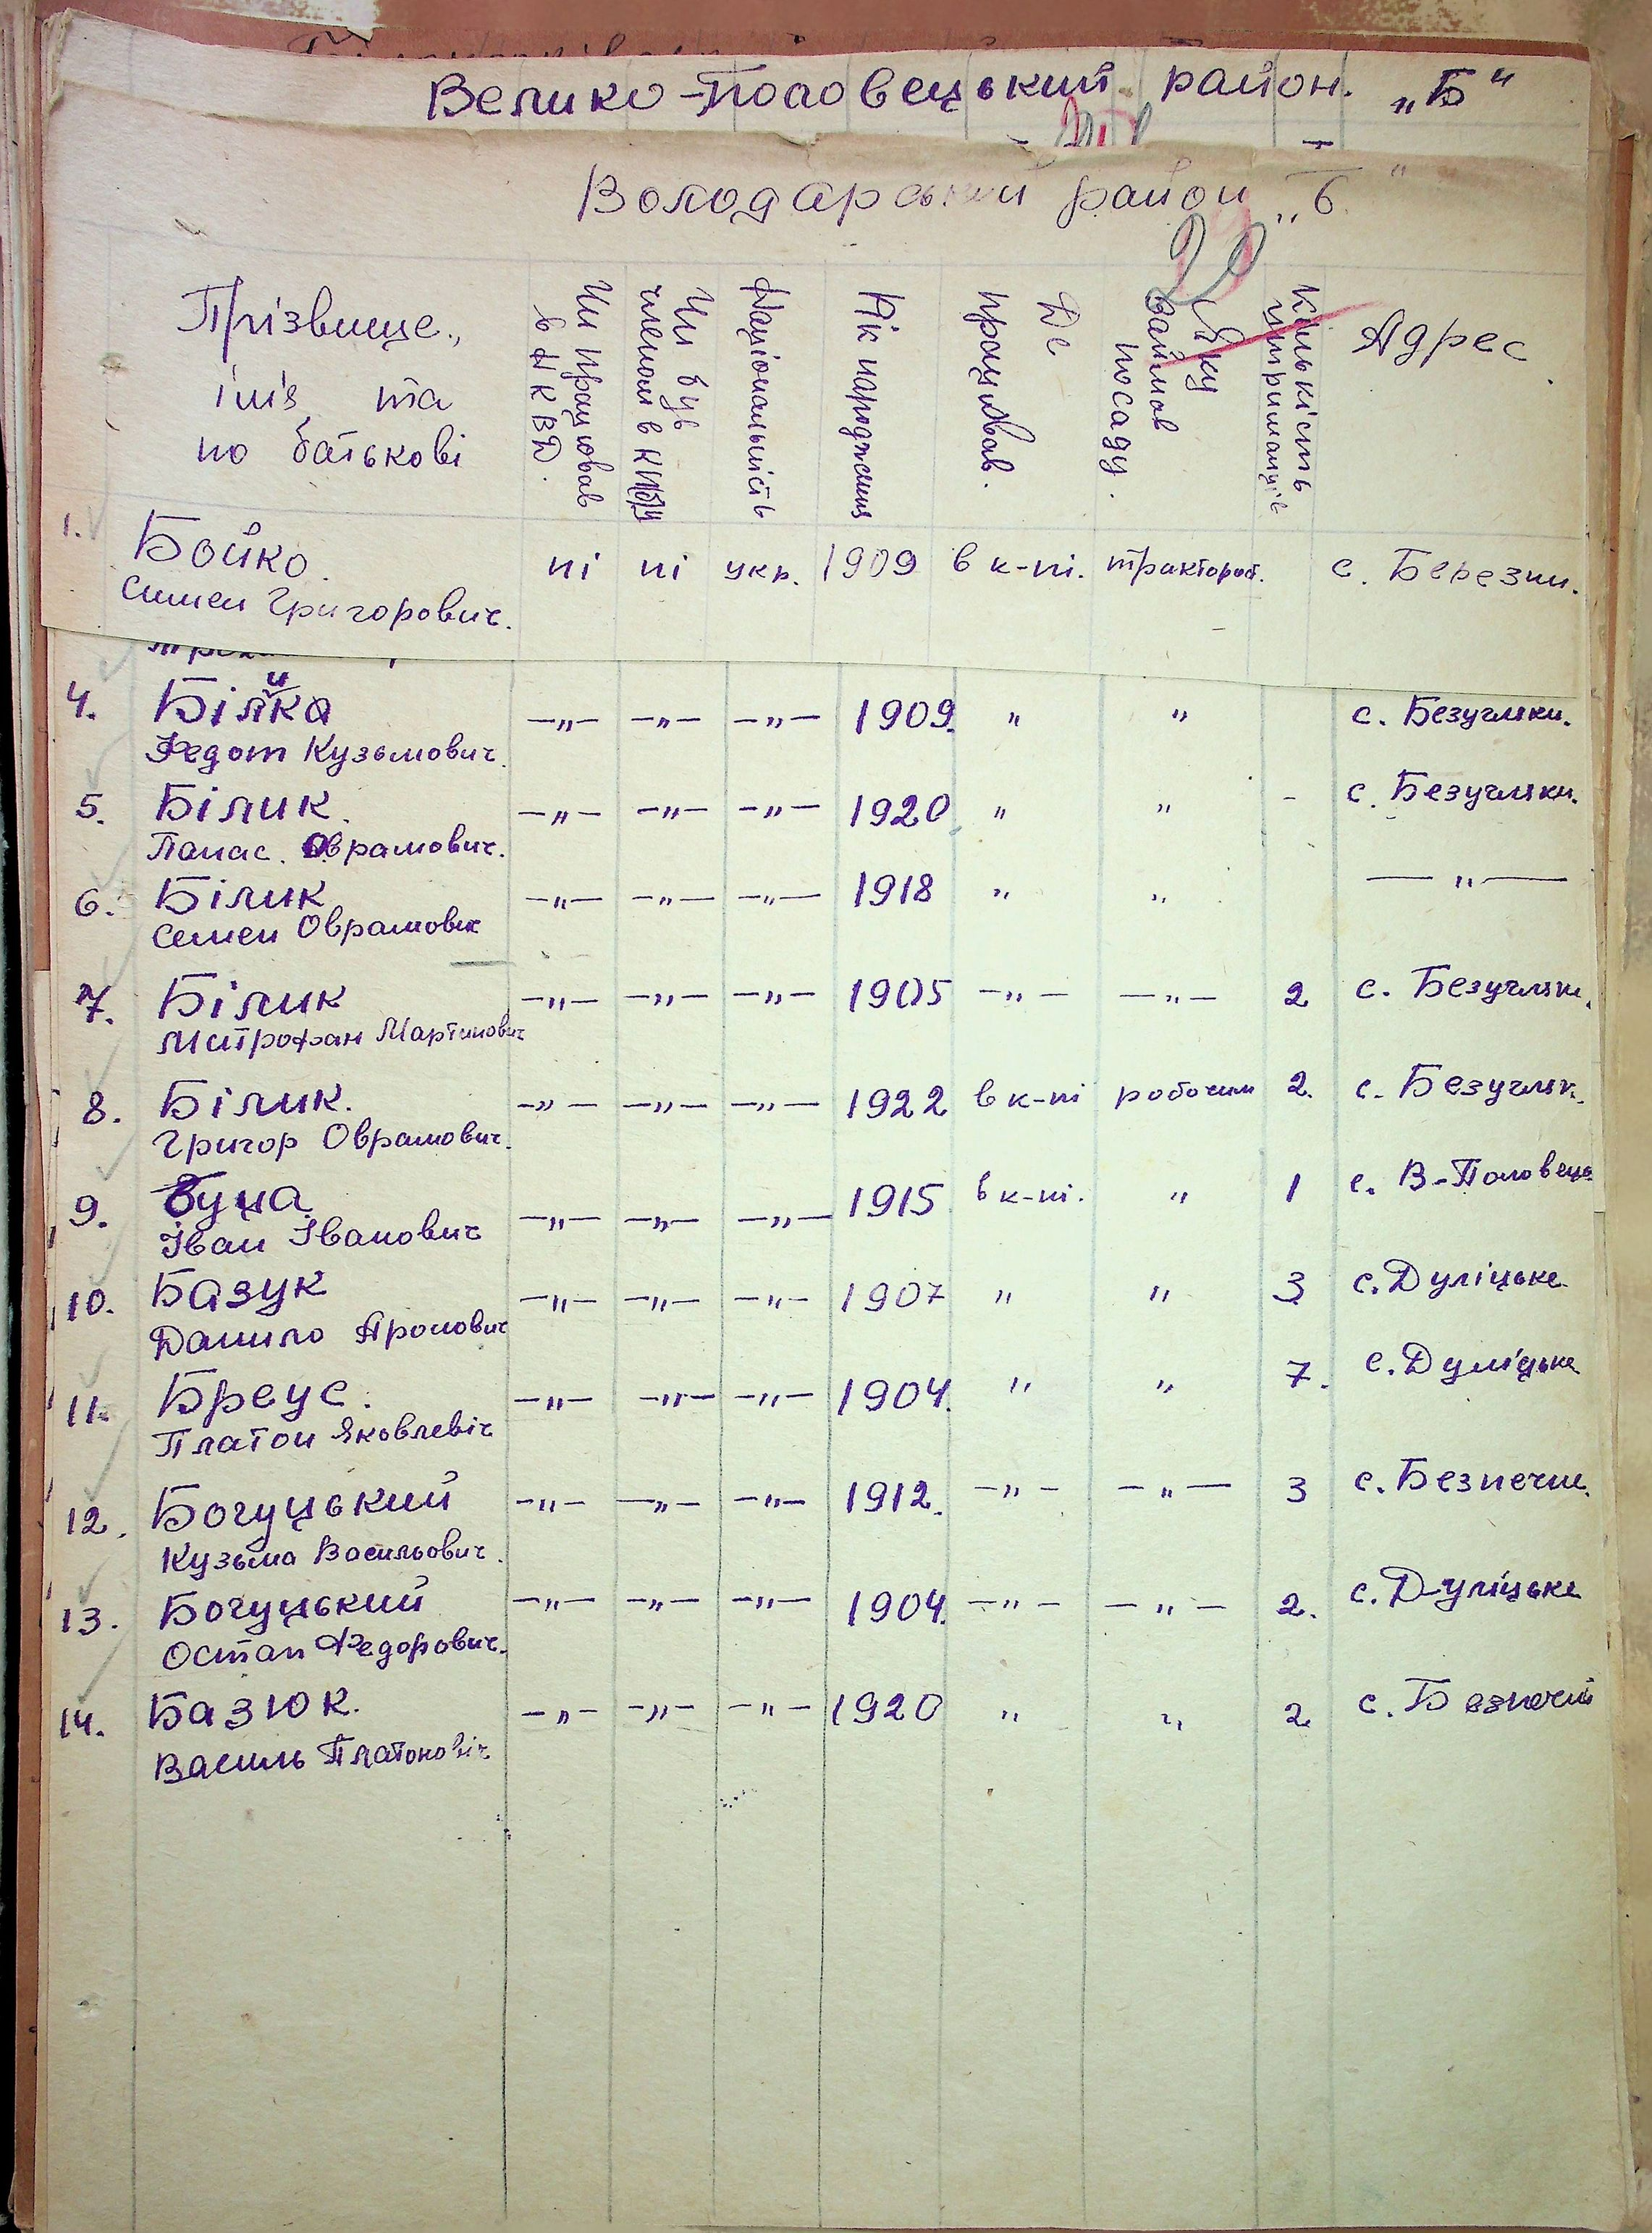 Велико-Половецький район. „Б"
Володарський район „Б"
20
Прізвище, ім'я та по батькові
Чи працював в НКВД.
Чи був членом в КП(б)У
Національність
Рік народження
Де працював.
Яку займав посаду.
Кількість утриманців
Адрес.
1. Бойко. ні ні укр. 1909 в к-пі. тракторист. с. Березни.
Симен Григорович.
4. Білика —"— —"— —"— 1909. " " с. Безугляки.
Федот Кузьмович.
5. Білик. —"— —"— —"— 1920 " " - с. Безугляки.
Панас. Оврамович.
6. Білик —"— —"— —"— 1918 " " —"—
Семен Оврамович
7. Білик —"— —"— —"— 1905 —"— —"— 2 с. Безугляки.
Митрофан Мартинович
8. Білик. —"— —"— —"— 1922 в к-пі робочим 2. с. Безугляк.
Григор Оврамович.
9. Буча —"— —"— —"— 1915 в к-пі. " 1 с. В-Половець
Іван Іванович
10. Базук —"— —"— —"— 1907 " " 3 с. Дуліцьке
Данило Яронович
11. Бреус. —"— —"— —"— 1904. " " 7. с. Дуліцьке
Платон Яковлевіч
12. Богуцький —"— —"— —"— 1912. —"— —"— 3 с. Безпечне.
Кузьма Васильович.
13. Богуцький —"— —"— —"— 1904. —"— —"— 2. с. Дуліцьке
Остап Федорович.
14. Базюк. —"— —"— —"— 1920 " " 2 с. Безпечни
Василь Платоновіч